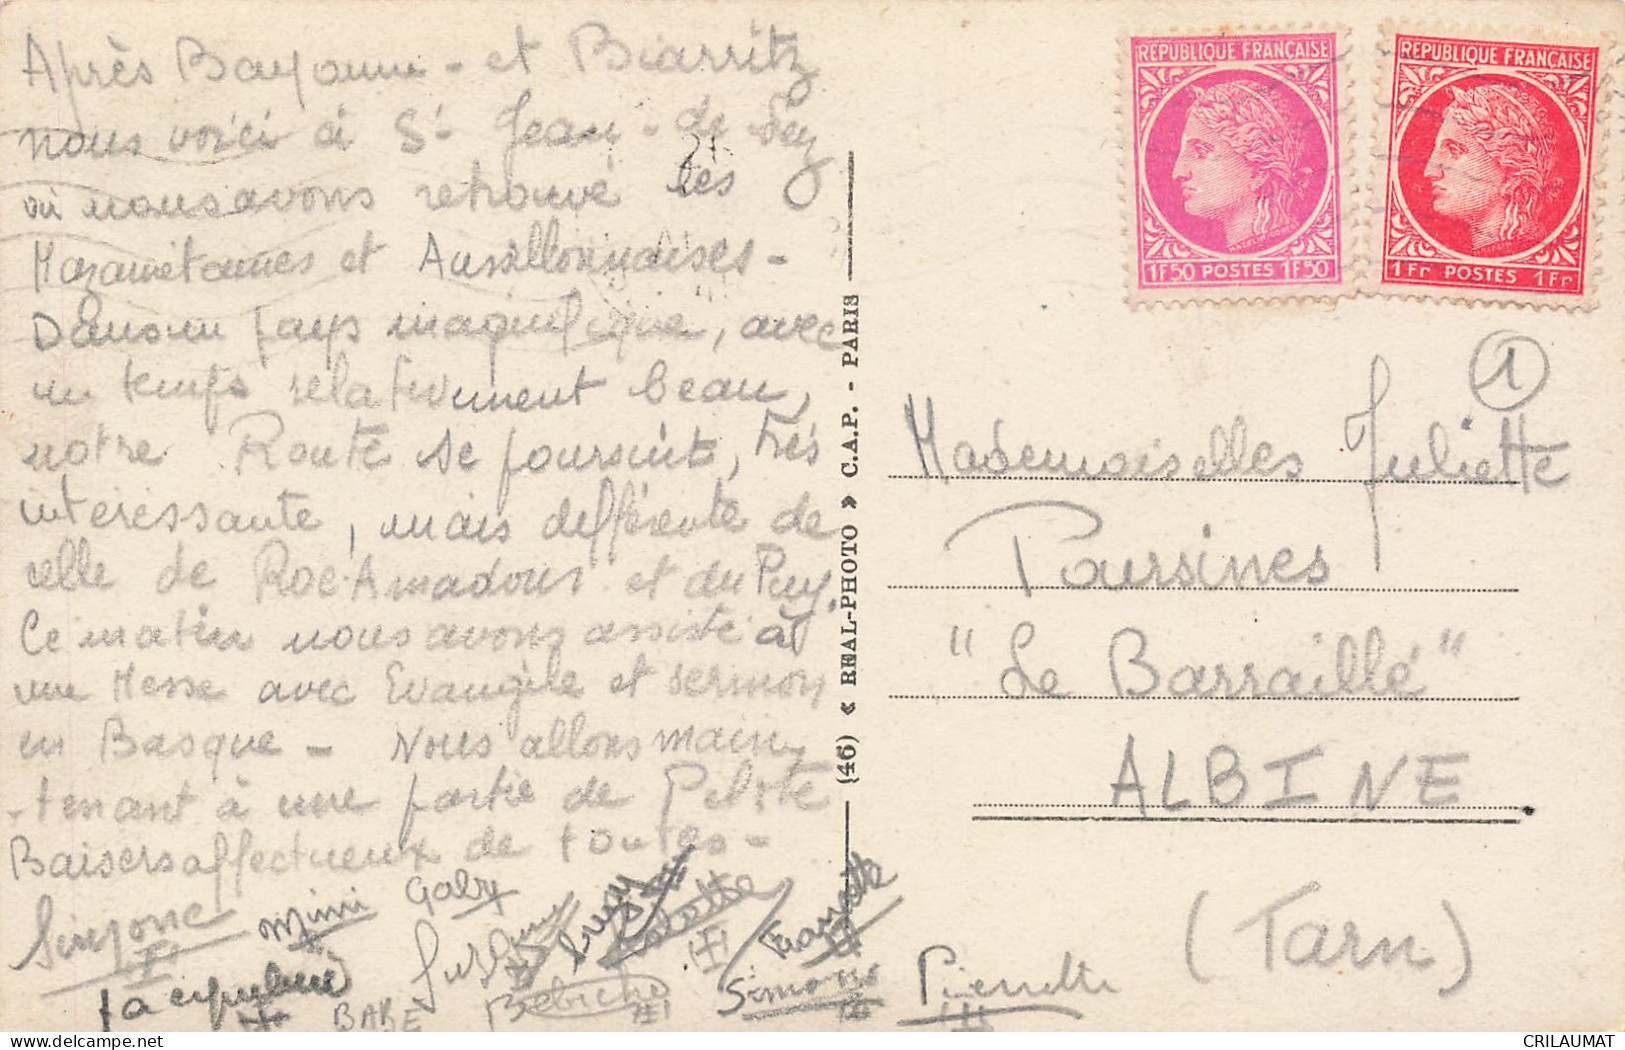 Après Bayonne - et Biarritz
nous voici à St Jean-de Luz
où nous avons retrouvé les
Mazamétaines et Aussillonnaises -
Dans un pays magnifique, avec
un temps relativement beau,
notre Route se poursuit, très
intéressante, mais différente de
celle de Roc-Amadour et du Puy.
Ce matin nous avons assisté à
une Messe avec Evangile et sermon
en Basque - Nous allons main
-tenant à une partie de Pelote
Baisers affectueux de toutes -
Simone Mimi Gaby
Jacqueline BABE Bebicho Simone Pierrette
Françoise
(46) « REAL-PHOTO » C.A.P. - PARIS
REPUBLIQUE FRANÇAISE
1F50 POSTES 1F50
REPUBLIQUE FRANÇAISE
1Fr POSTES 1Fr
1
Mademoiselles Juliette
Poursines
"Le Barraillé"
ALBINE
(Tarn)
CRILAUMAT